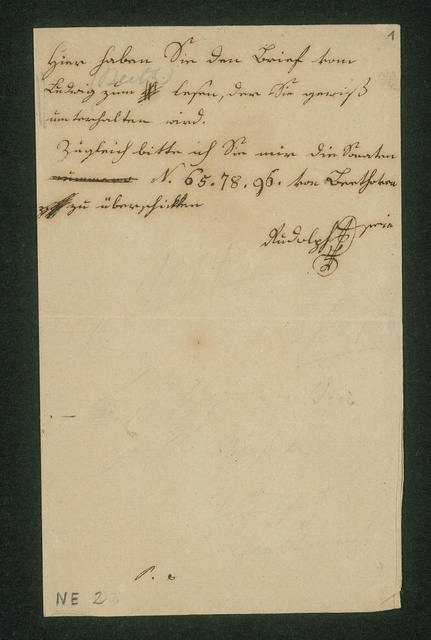 1
Hier haben Sie den Brief vom
(Beeth.)
Ludwig zum lesen, der Sie gewiß
unterhalten wird.
Zugleich bitte ich Sie mir die Sonaten
N. 65. 78. 96. von Beethoven
zu überschicken
Rudolph
NE 2